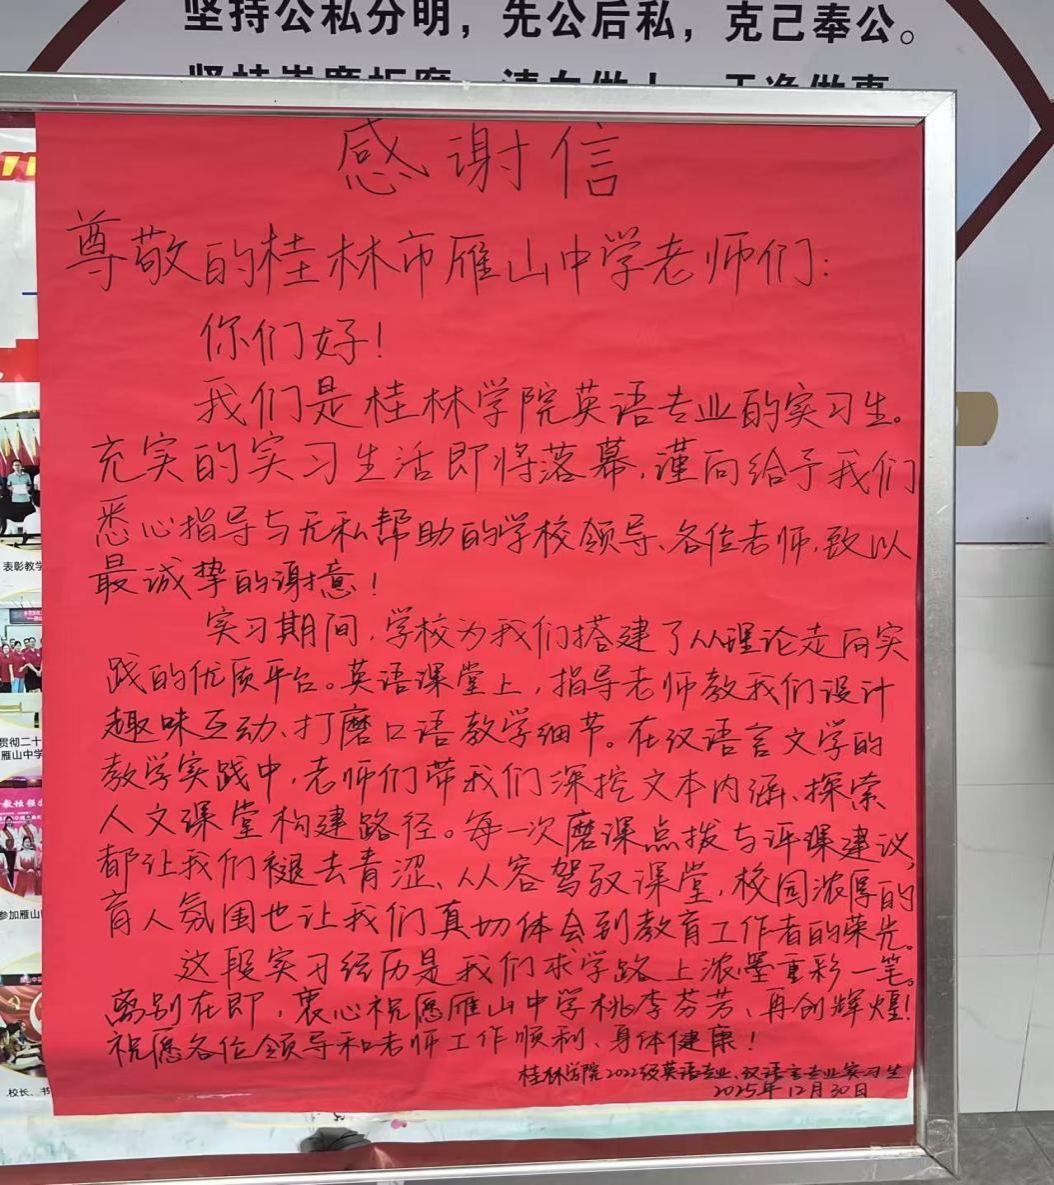 坚持公私分明，先公后私，克己奉公。
感谢信
尊敬的桂林市雁山中学老师们：
你们好！
我们是桂林学院英语专业的实习生。
充实的实习生活即将落幕，谨向给予我们
悉心指导与无私帮助的学校领导、各位老师，致以
最诚挚的谢意！
实习期间，学校为我们搭建了从理论走向实
践的优质平台。英语课堂上，指导老师教我们设计
趣味互动、打磨口语教学细节。在汉语言文学的
教学实践中，老师们带我们深挖文本内涵、探索
人文课堂构建路径。每一次磨课点拨与评课建议，
都让我们褪去青涩、从容驾驭课堂，校园浓厚的
育人氛围也让我们真切体会到教育工作者的荣光。
这段实习经历是我们求学路上浓墨重彩一笔。
离别在即，衷心祝愿雁山中学桃李芬芳、再创辉煌！
祝愿各位领导和老师工作顺利、身体健康！
桂林学院2022级英语专业、汉语言专业实习生
2025年12月30日
表彰教学
贯彻二十
雁山中学
参加雁山
校长、书